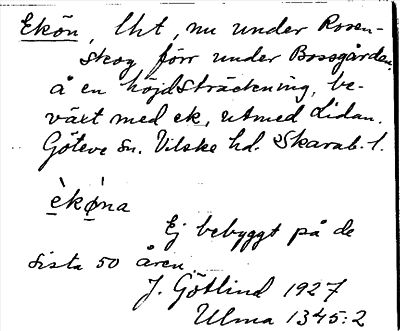 Ekön, lht, nu under Rosen-
skog förr under Bossgården
å en höjdsträckning, be-
växt med ek, utmed Lidan.
Göteve sn. Vilske hd. Skarab. l.
èkø̀na
Ej bebyggt på de
sista 50 åren.
J. Götlind 1927
Ulma 1345:2